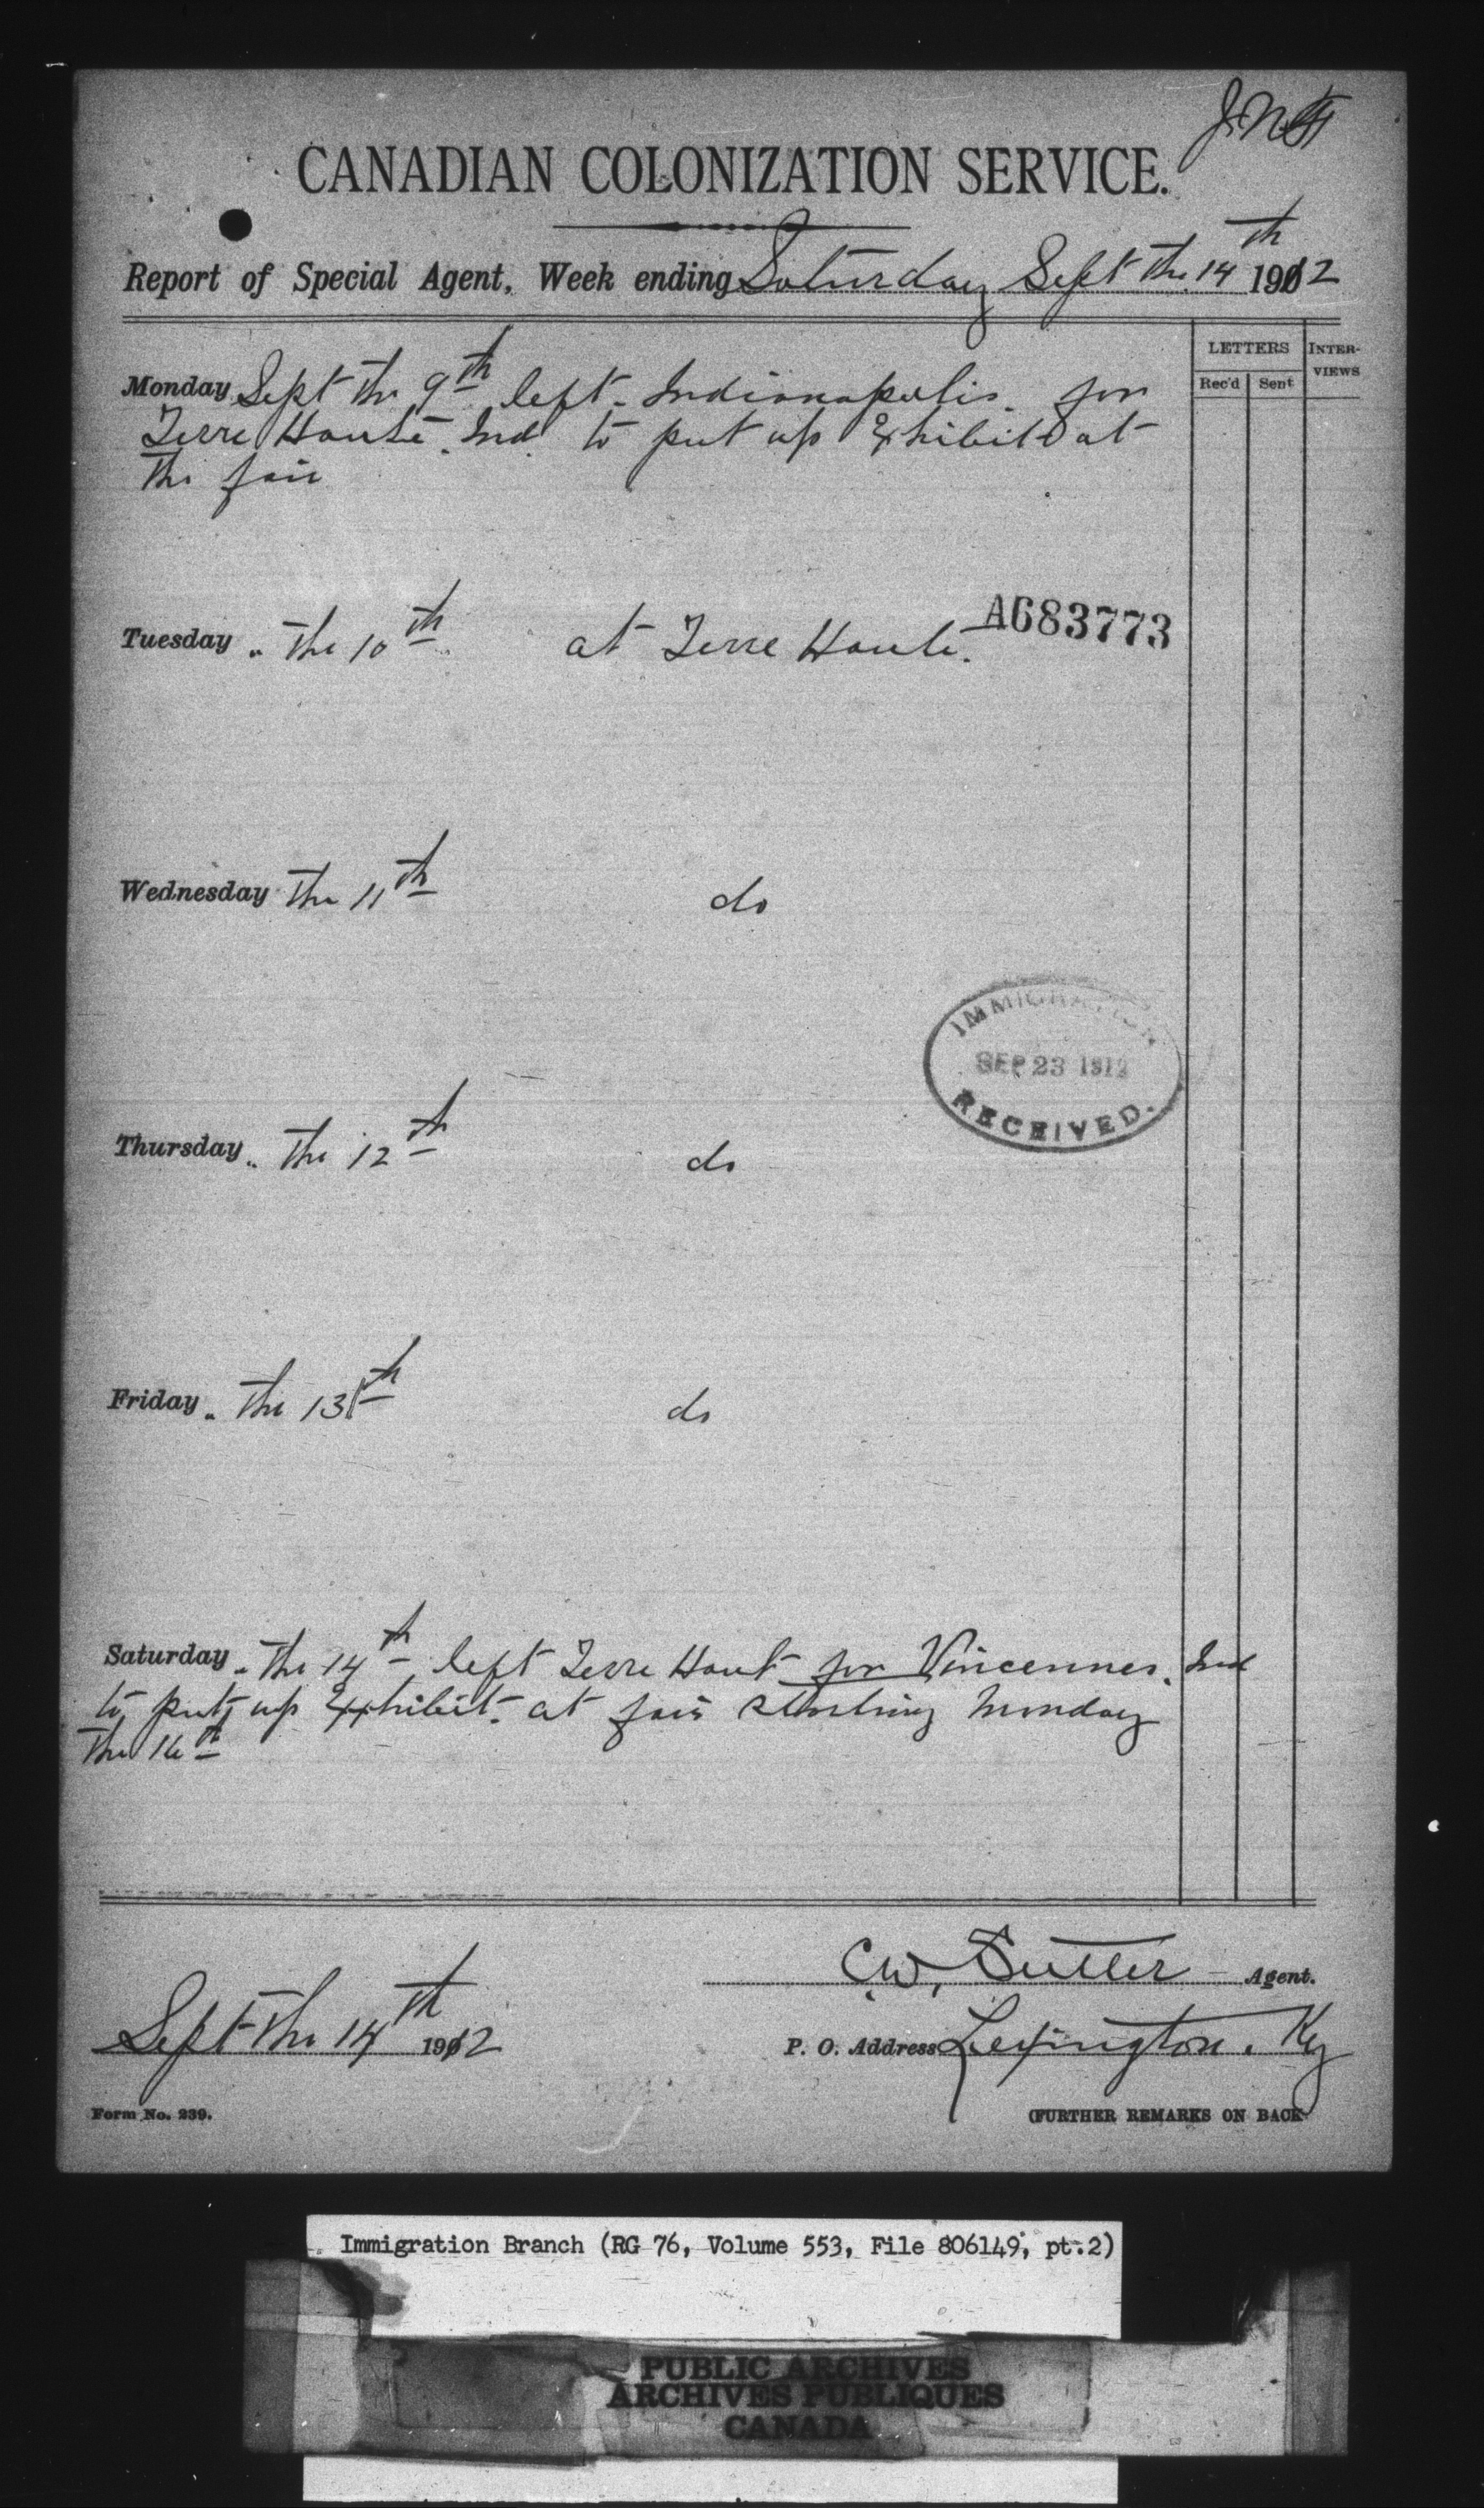 CANADIAN COLONIZATION SERVICE.
Report of Special Agent, Week ending Saturday Sept the 14th 1912
LETTERS
INTER-VIEWS
Rec'd Sent
Monday Sept the 9th left Indianapolis for
Terre Haute Ind to put up Exhibit at
the fair
A683773
Tuesday " the 10th at Terre Haute.
Wednesday the 11th do
IMMIGRATION
SEP 23 1912
RECEIVED.
Thursday " the 12th do
Friday " the 13th do
Saturday " the 14th left Terre Haut for Vincennes. Ind
to put up Exhibit at fair starting Monday
the 16th
C.W. Sutter Agent.
Sept the 14th 1912
P. O. Address Lexington. Ky
Form No. 239.
(FURTHER REMARKS ON BACK
Immigration Branch (RG 76, Volume 553, File 806149, pt.2)
PUBLIC ARCHIVES
ARCHIVES PUBLIQUES
CANADA